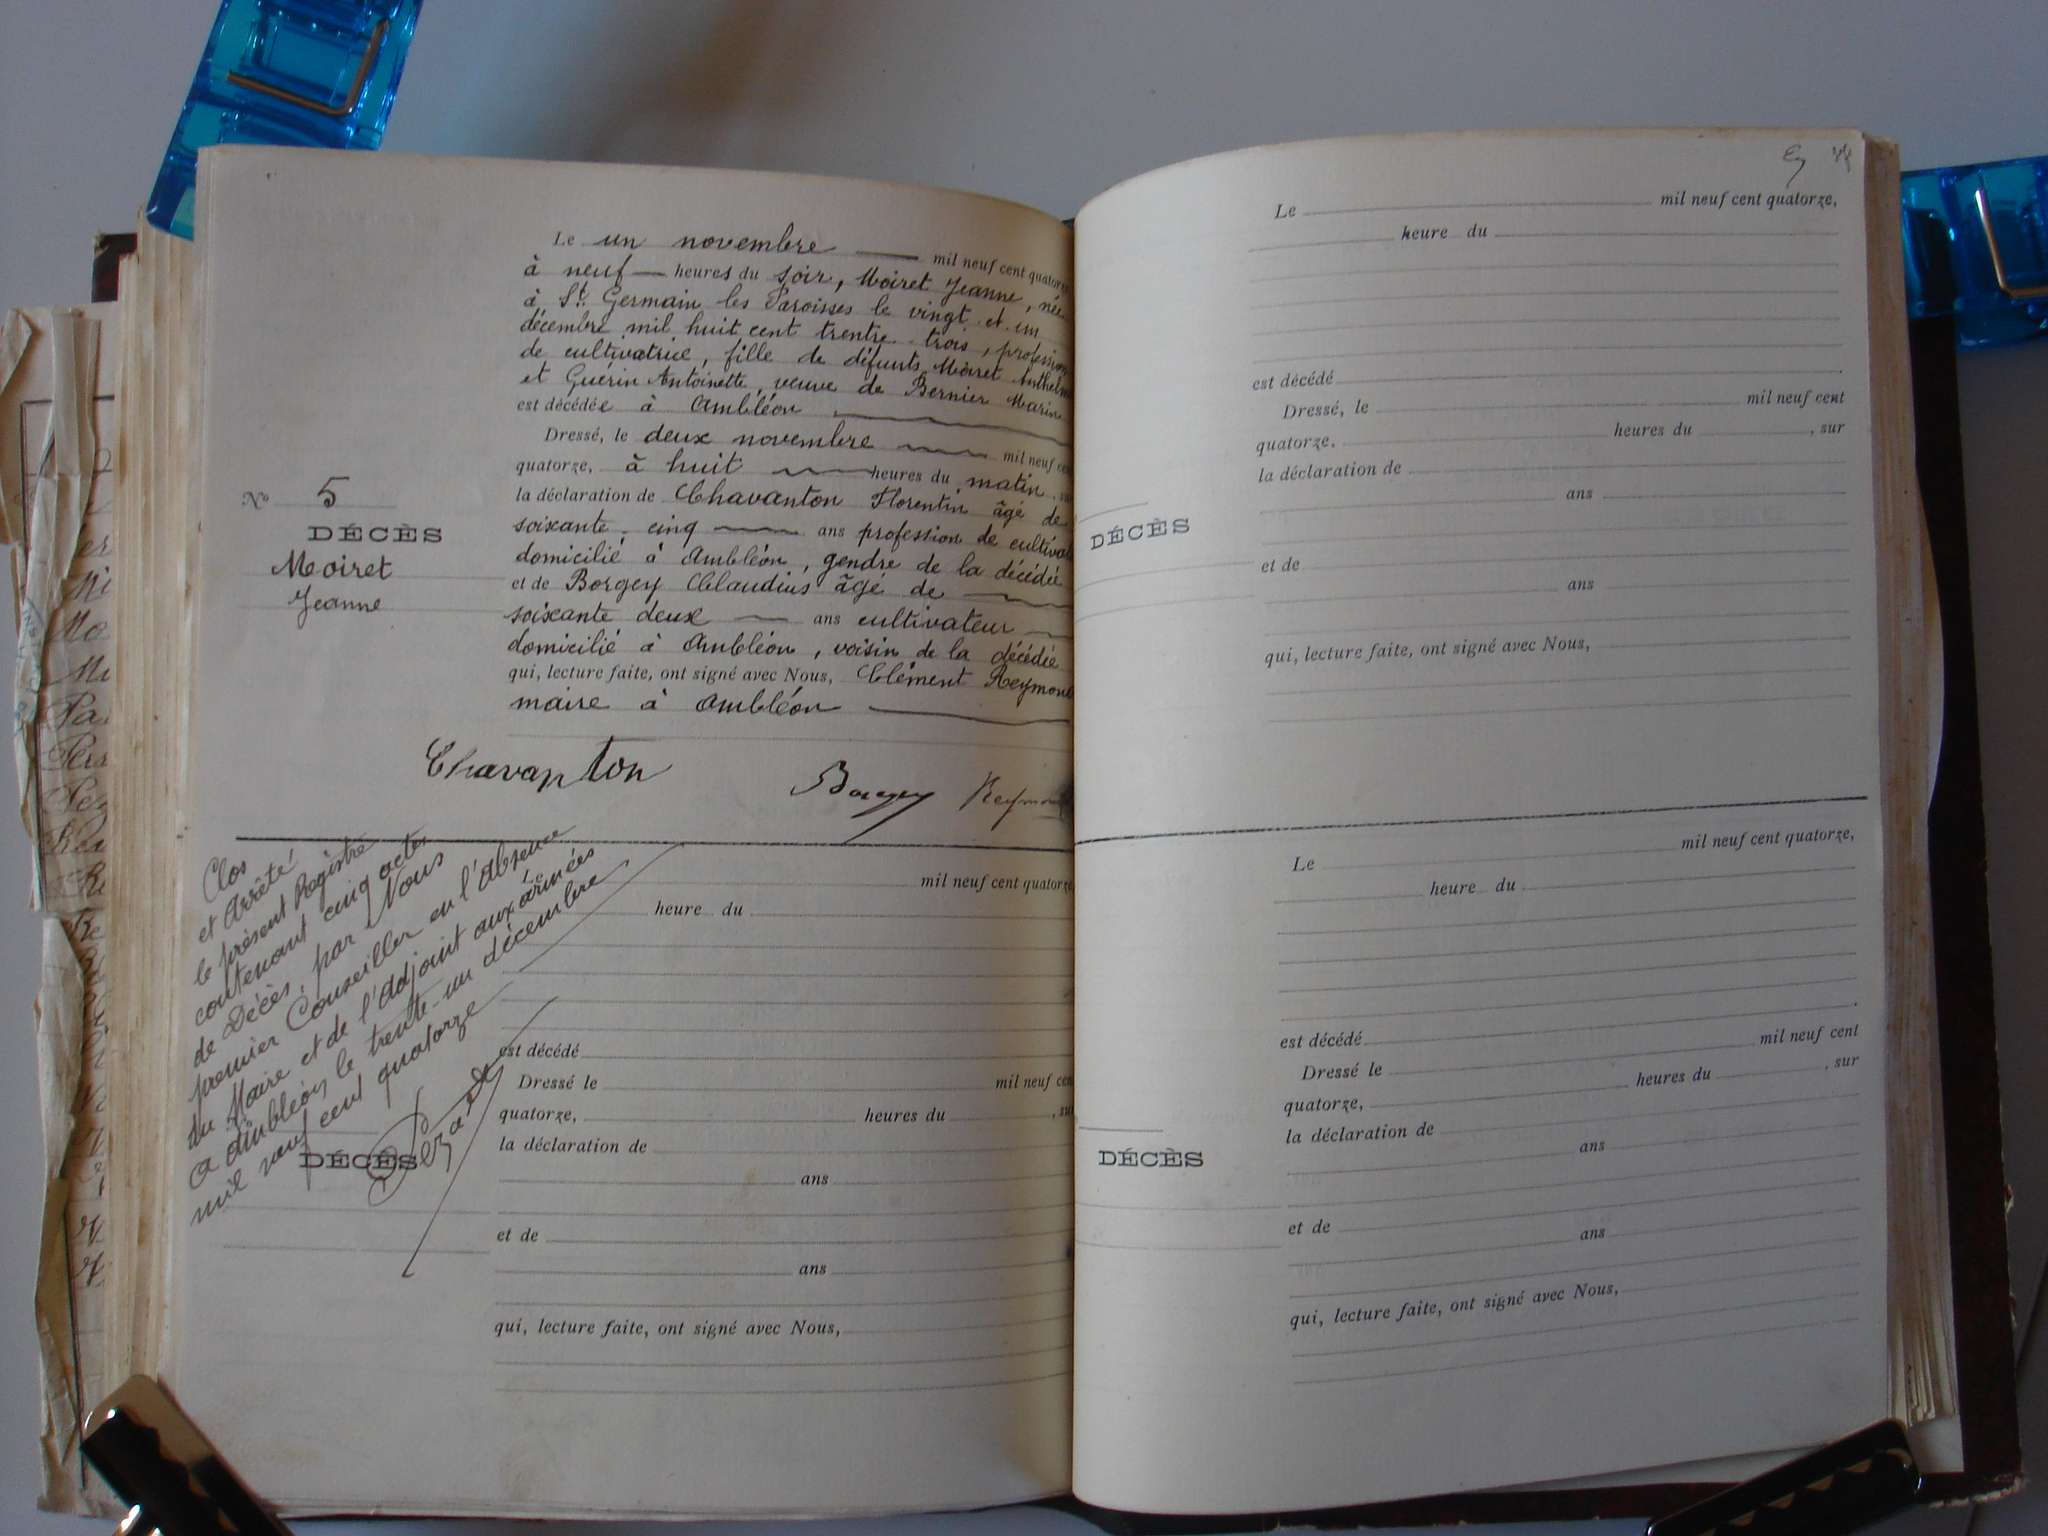 Le un novembre mil neuf cent quatorze
à neuf heures du soir, Moiret Jeanne, née
à St. Germain les Paroisses le vingt et un
décembre mil huit cent trentre trois, profession
de cultivatrice, fille de défunts Moiret Anthelm
et Guérin Antoinette, veuve de Bernier Marin
est décédée à Ambléon
Dressé, le deux novembre mil neuf cent
quatorze, à huit heures du matin
la déclaration de Chavanton Florentin âgé de
soixante cinq ans profession de cultivat
domicilié à Ambléon, gendre de la décédée
et de Borgey Claudius âgé de
soixante deux ans cultivateur
domicilié à Ambléon, voisin de la décédée
qui, lecture faite, ont signé avec Nous, Clément Reymond
maire à Ambléon
Chavanton
Borgey Reymond
No 5
DÉCÈS
Moiret
Jeanne
Clos
et Arrêté
le présent Registre
contenant cinq actes
de Décès, par Nous
premier Conseiller en l'absence
du Maire et de l'Adjoint aux armées
A Ambléon, le trente-un décembre
mil neuf cent quatorze
Le mil neuf cent quatorze
heure du
est décédé
Dressé le mil neuf cent
quatorze, heures du , sur
la déclaration de
ans
et de
ans
qui, lecture faite, ont signé avec Nous,
DÉCÈS
Le mil neuf cent quatorze,
heure du
est décédé .
Dressé, le mil neuf cent
quatorze, heures du , sur
la déclaration de
ans
DÉCÈS
et de
ans
qui, lecture faite, ont signé avec Nous,
Le mil neuf cent quatorze,
heure du
est décédé .
Dressé le mil neuf cent
quatorze, heures du , sur
la déclaration de
ans
DÉCÈS
et de
ans
qui, lecture faite, ont signé avec Nous,